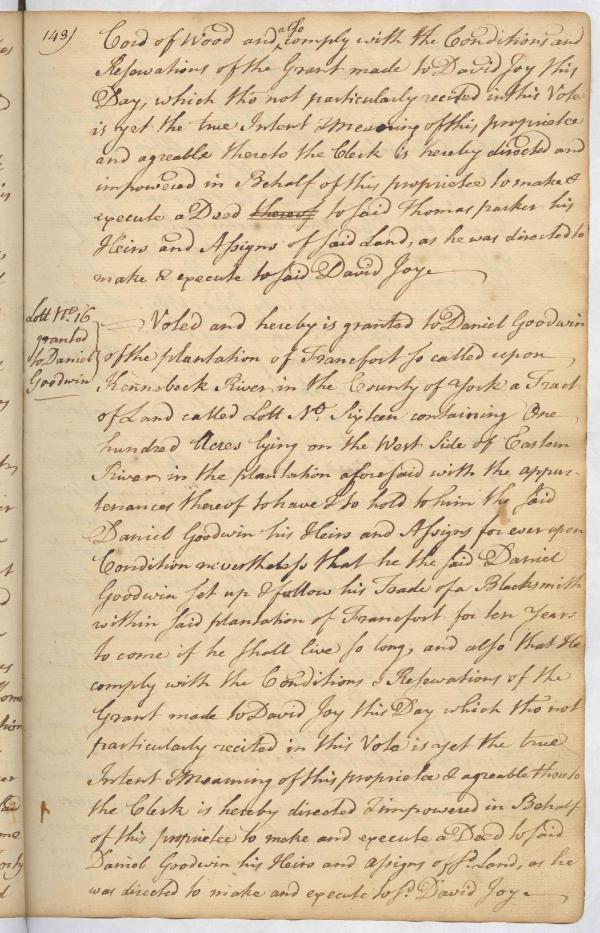 143)
Cord of Wood and also comply with the Conditions and
Resarvations of the Grant made to David Joy this
Day, which tho not particularly recited in this Vote
is yet the true Intent & Meaning of this proprietee
and agreable thereto the Clerk is hereby directed and
impowered in Behalf of this proprietee to make &
execute a Deed thereof to said Thomas parker his
Heirs and Assigns of said Land, as he was directed to
make & execute to said David Joy.
Lott No. 16
granted
to Daniel
Goodwin
Voted and hereby is granted to Daniel Goodwin
of the plantation of Francfort so called upon
Kennebeck River in the County of York a Tract
of Land called Lott No. Sixteen containing One
hundred Acres lying on the West Side of Eastern
River in the plantation aforesaid with the appur-
tenances thereof to have & to hold to him the said
Daniel Goodwin his Heirs and Assigns for ever upon
Condition nevertheless that he the said Daniel
Goodwin set up & follow his Trade of a Blacksmith
within said plantation of Francfort for ten Years
to come if he shall live so long, and also that He
comply with the Conditions & Resarvations of the
Grant made to David Joy this Day which tho not
particularly recited in this Vote is yet the true
Intent & Meaning of this proprietee & agreable thereto
the Clerk is hereby directed & impowered in Behalf
of this proprietee to make and execute a Deed to said
Daniel Goodwin his Heirs and assigns of sd. Land, as he
was directed to make and execute to sd. David Joy.